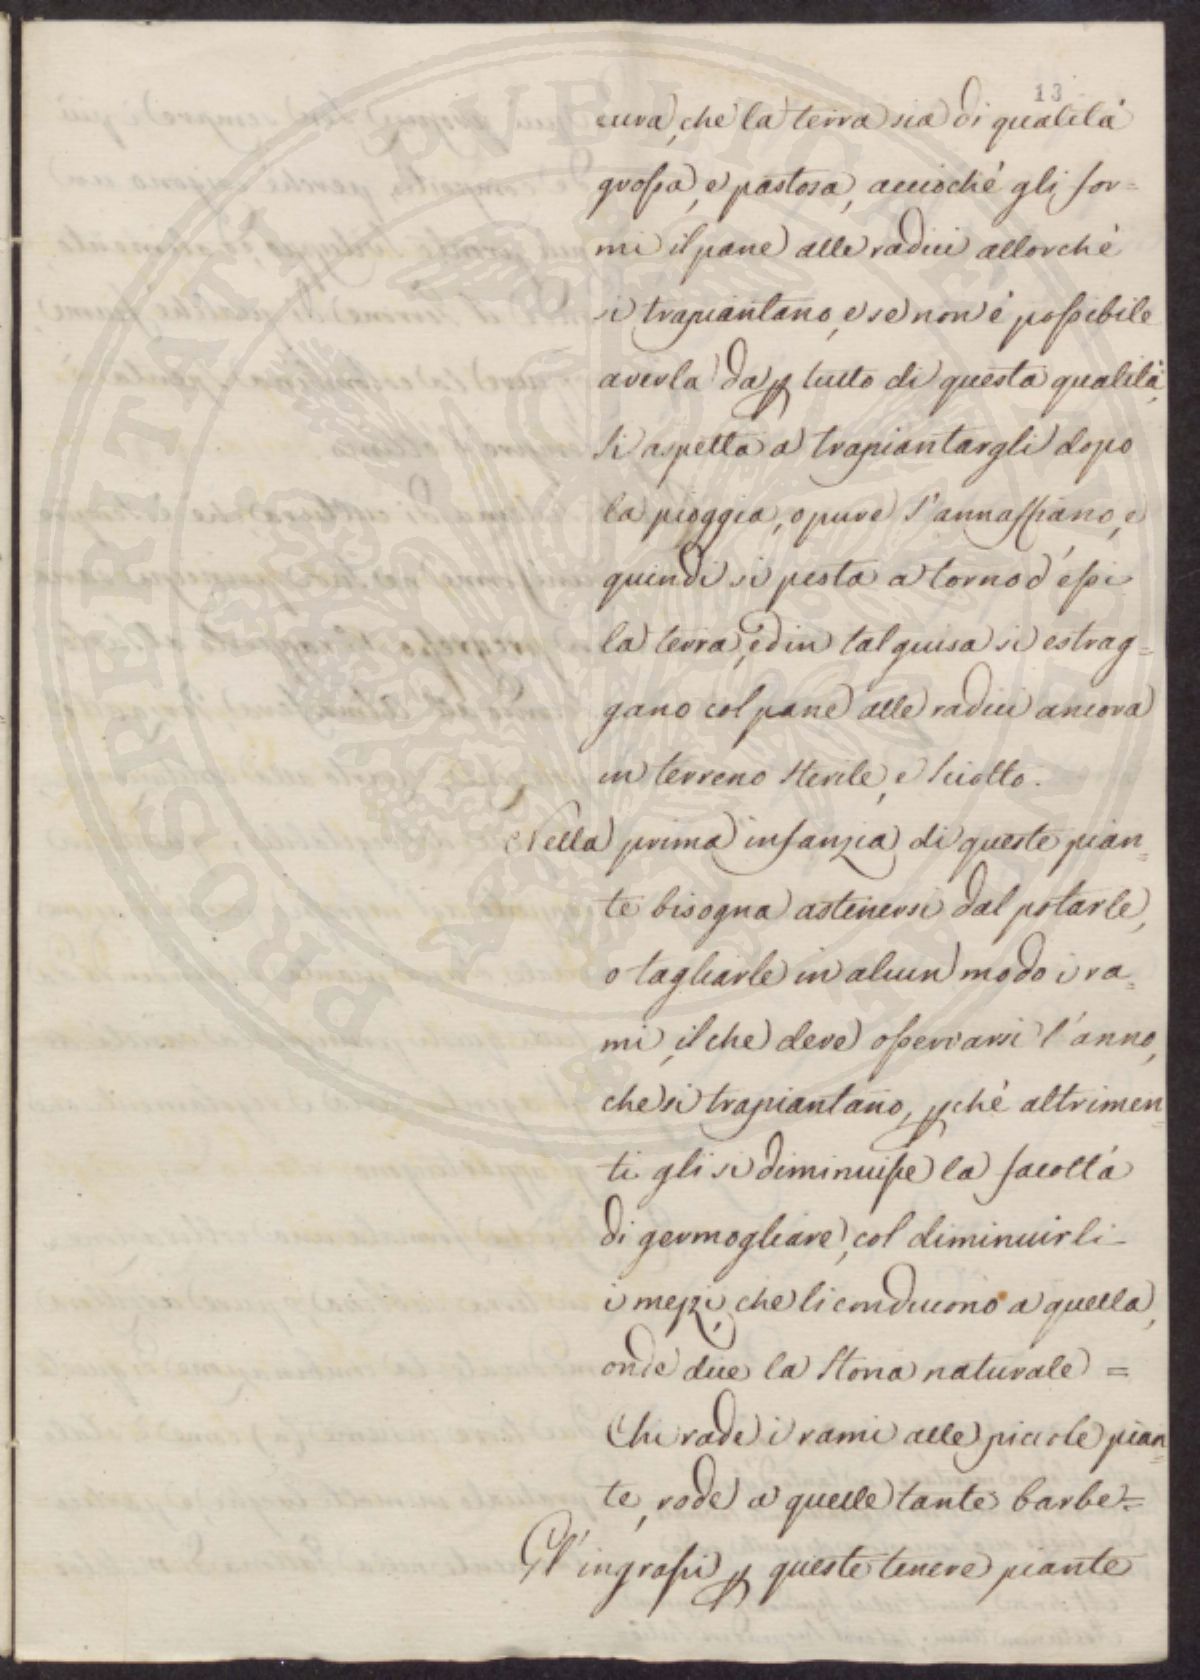 13
cura, che la terra sia di qualità
grossa, e pastosa, acciochè gli for=
mi il pane alle radici allorchè
si trapiantano, e se non è possibile
averla da p tutto di questa qualità,
si aspetta a trapiantargli dopo
la pioggia, opure s'annaffiano, e
quindi si pesta a torno d'essi
la terra, ed in tal guisa si estrag=
gano col pane alle radici ancora
in terreno sterile, e sciolto.
Nella prima infanzia di queste pian=
te bisogna astenersi dal potarle,
o tagliarle in alcun modo i ra=
mi, il che deve osservarsi l'anno,
che si trapiantano, pchè altrimen=
ti gli si diminuisse la facoltà
di germogliare, col diminuirli
i mezzi, che li conducono a quella,
onde dice la storia naturale =
Chi rade i rami alle piccole pian=
te, rode a quelle tante barbe=
Gl'ingrassi p queste tenere piante
PVBLICAE
PROSPERITATI